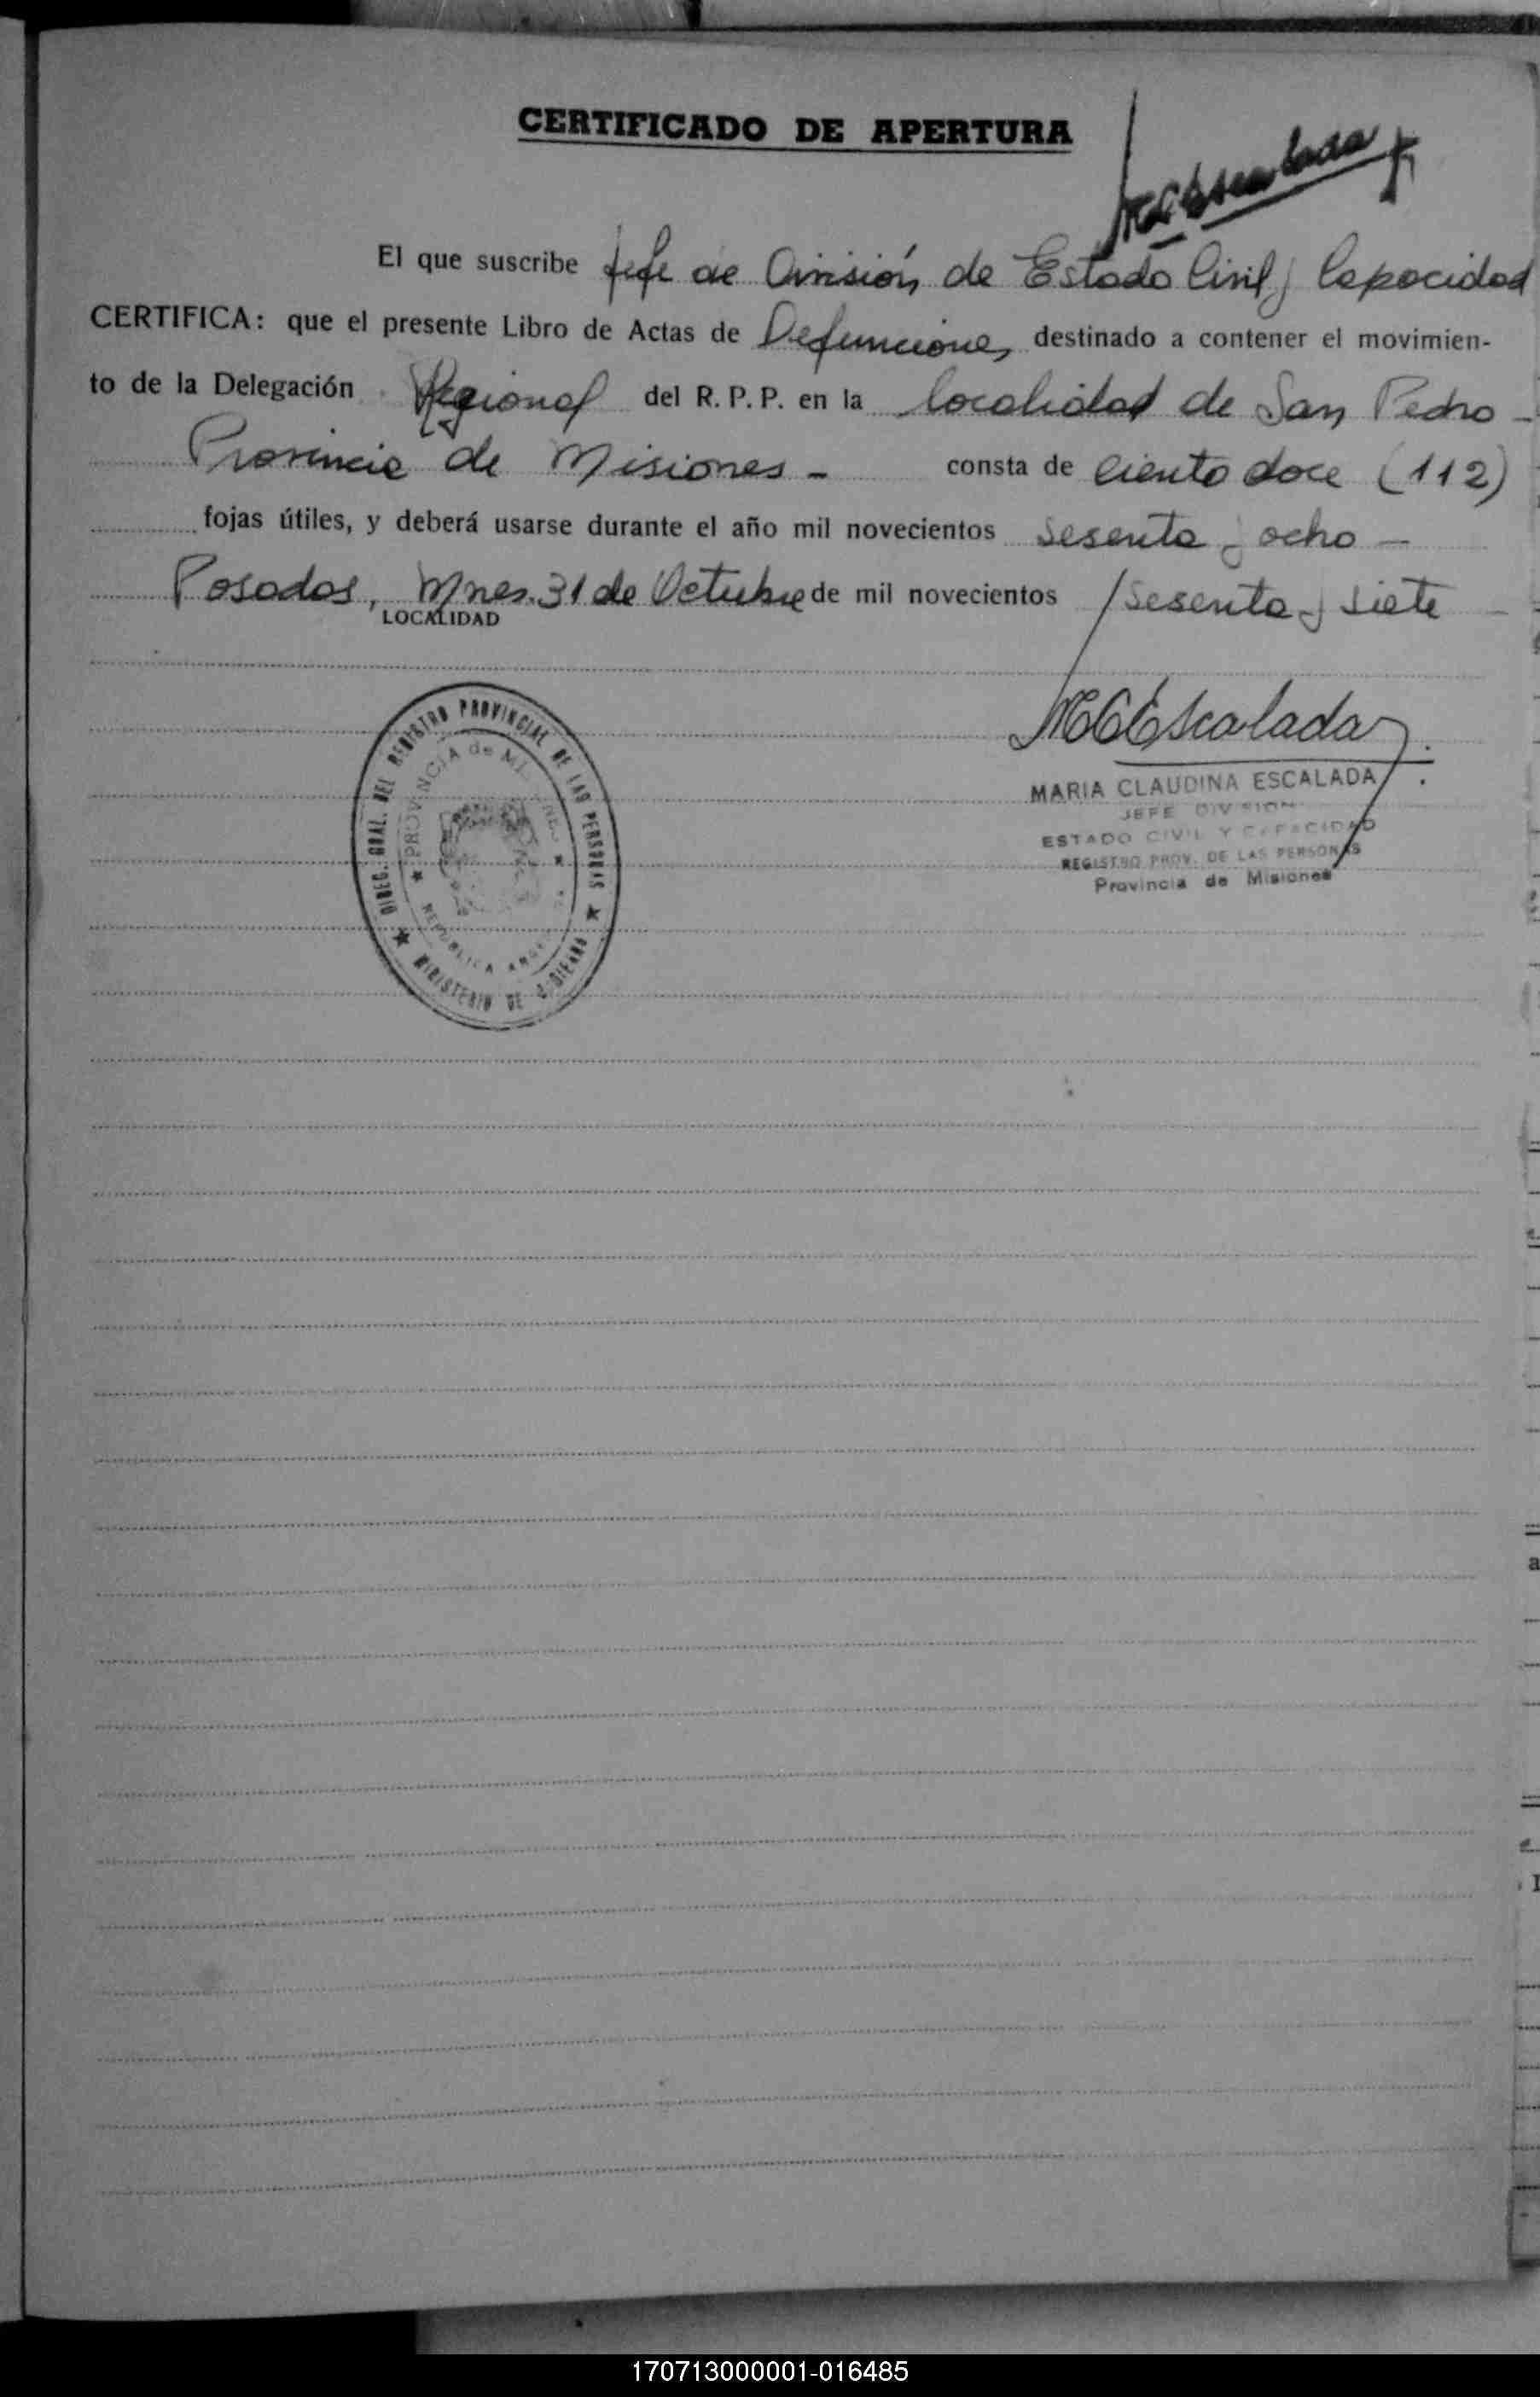 CERTIFICADO DE APERTURA
MCEscalada
El que suscribe Jefe de División de Estado Civil y Capacidad
CERTIFICA: que el presente Libro de Actas de Defunciones destinado a contener el movimien-
to de la Delegación Regional del R. P. P. en la localidad de San Pedro -
Provincia de Misiones - consta de ciento doce (112)
fojas útiles, y deberá usarse durante el año mil novecientos sesenta y ocho -
Posadas, Mnes. 31 de Octubre de mil novecientos sesenta y siete
LOCALIDAD
MCEscalada
MARIA CLAUDINA ESCALADA
JEFE DIVISION
ESTADO CIVIL Y CAPACIDAD
REGISTRO PROV. DE LAS PERSONAS
Provincia de Misiones
DIREC. GRAL. DEL REGISTRO PROVINCIAL DE LAS PERSONAS
PROVINCIA de
REPUBLICA
MINISTERIO DE GOBIERNO
170713000001-016485